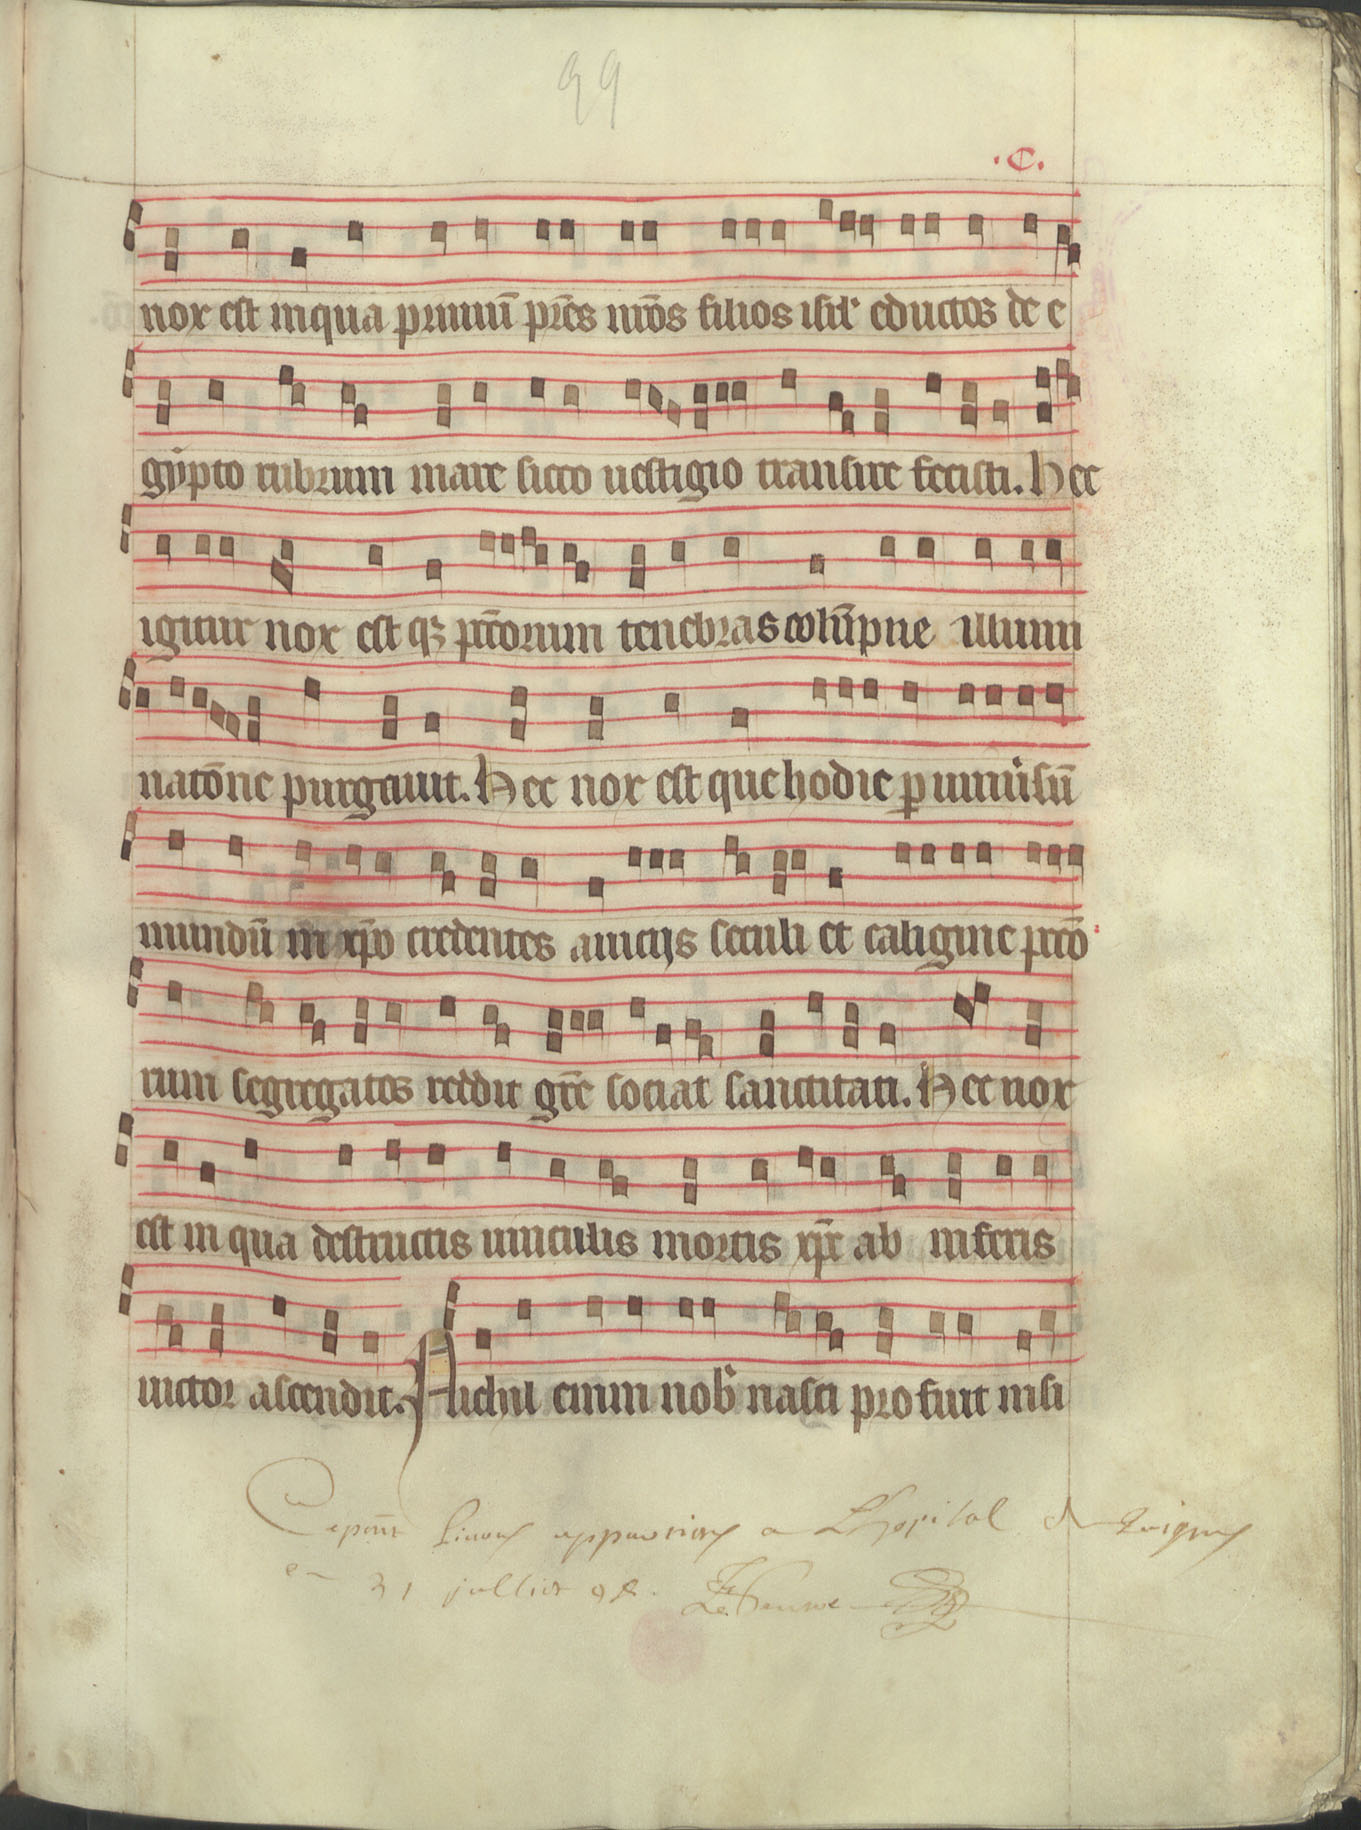 99
.C.
nox est in qua primū pr̄es nr̄os filios isrl' eductos de e
gypto rubrum mare sicco uestigio transire fecisti. Hec
igitur nox est qꝫ pcc̄orum tenebras colūpne illumi
natōne purgauit. Hec nox est que hodie ꝑ uniuersū
mundū in xp̄o credentes a uicijs seculi et caligine pccō
rum segregatos reddit gr̄e sociat sanctitati. Hec nox
est in qua destructis uinculis mortis xp̄c ab inferis
uictor ascendit. Nichil enim nob' nasci profuit nisi
appartient a Lhopital
31 juillet